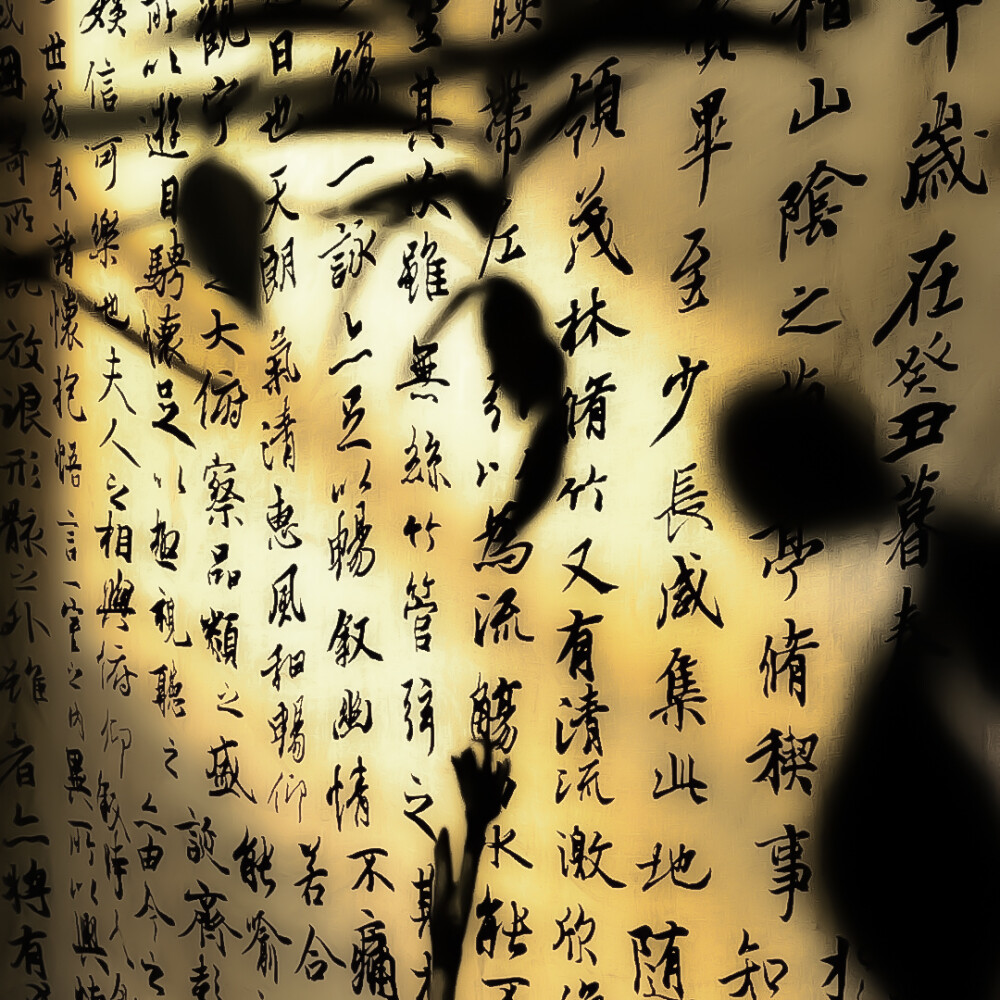 年歲在癸丑暮春
山陰之亭脩禊事
知
賢畢至少長咸集此地
隨
領茂林脩竹又有清流激
欣
映帶左引以為流觴水
能不
坐其次雖無絲竹管弦之
其
觴一詠亦足以暢敘幽情
不痛
日也天朗氣清惠風和暢仰
若合
觀宇之大俯察品類之盛
能喻
所以遊目騁懷足以極視聽之
設齊彭
娛信可樂也夫人之相與俯仰
亦由今之
世或取諸懷抱悟言一室之內
異所以興情
因寄所託放浪形骸之外雖
者亦將有